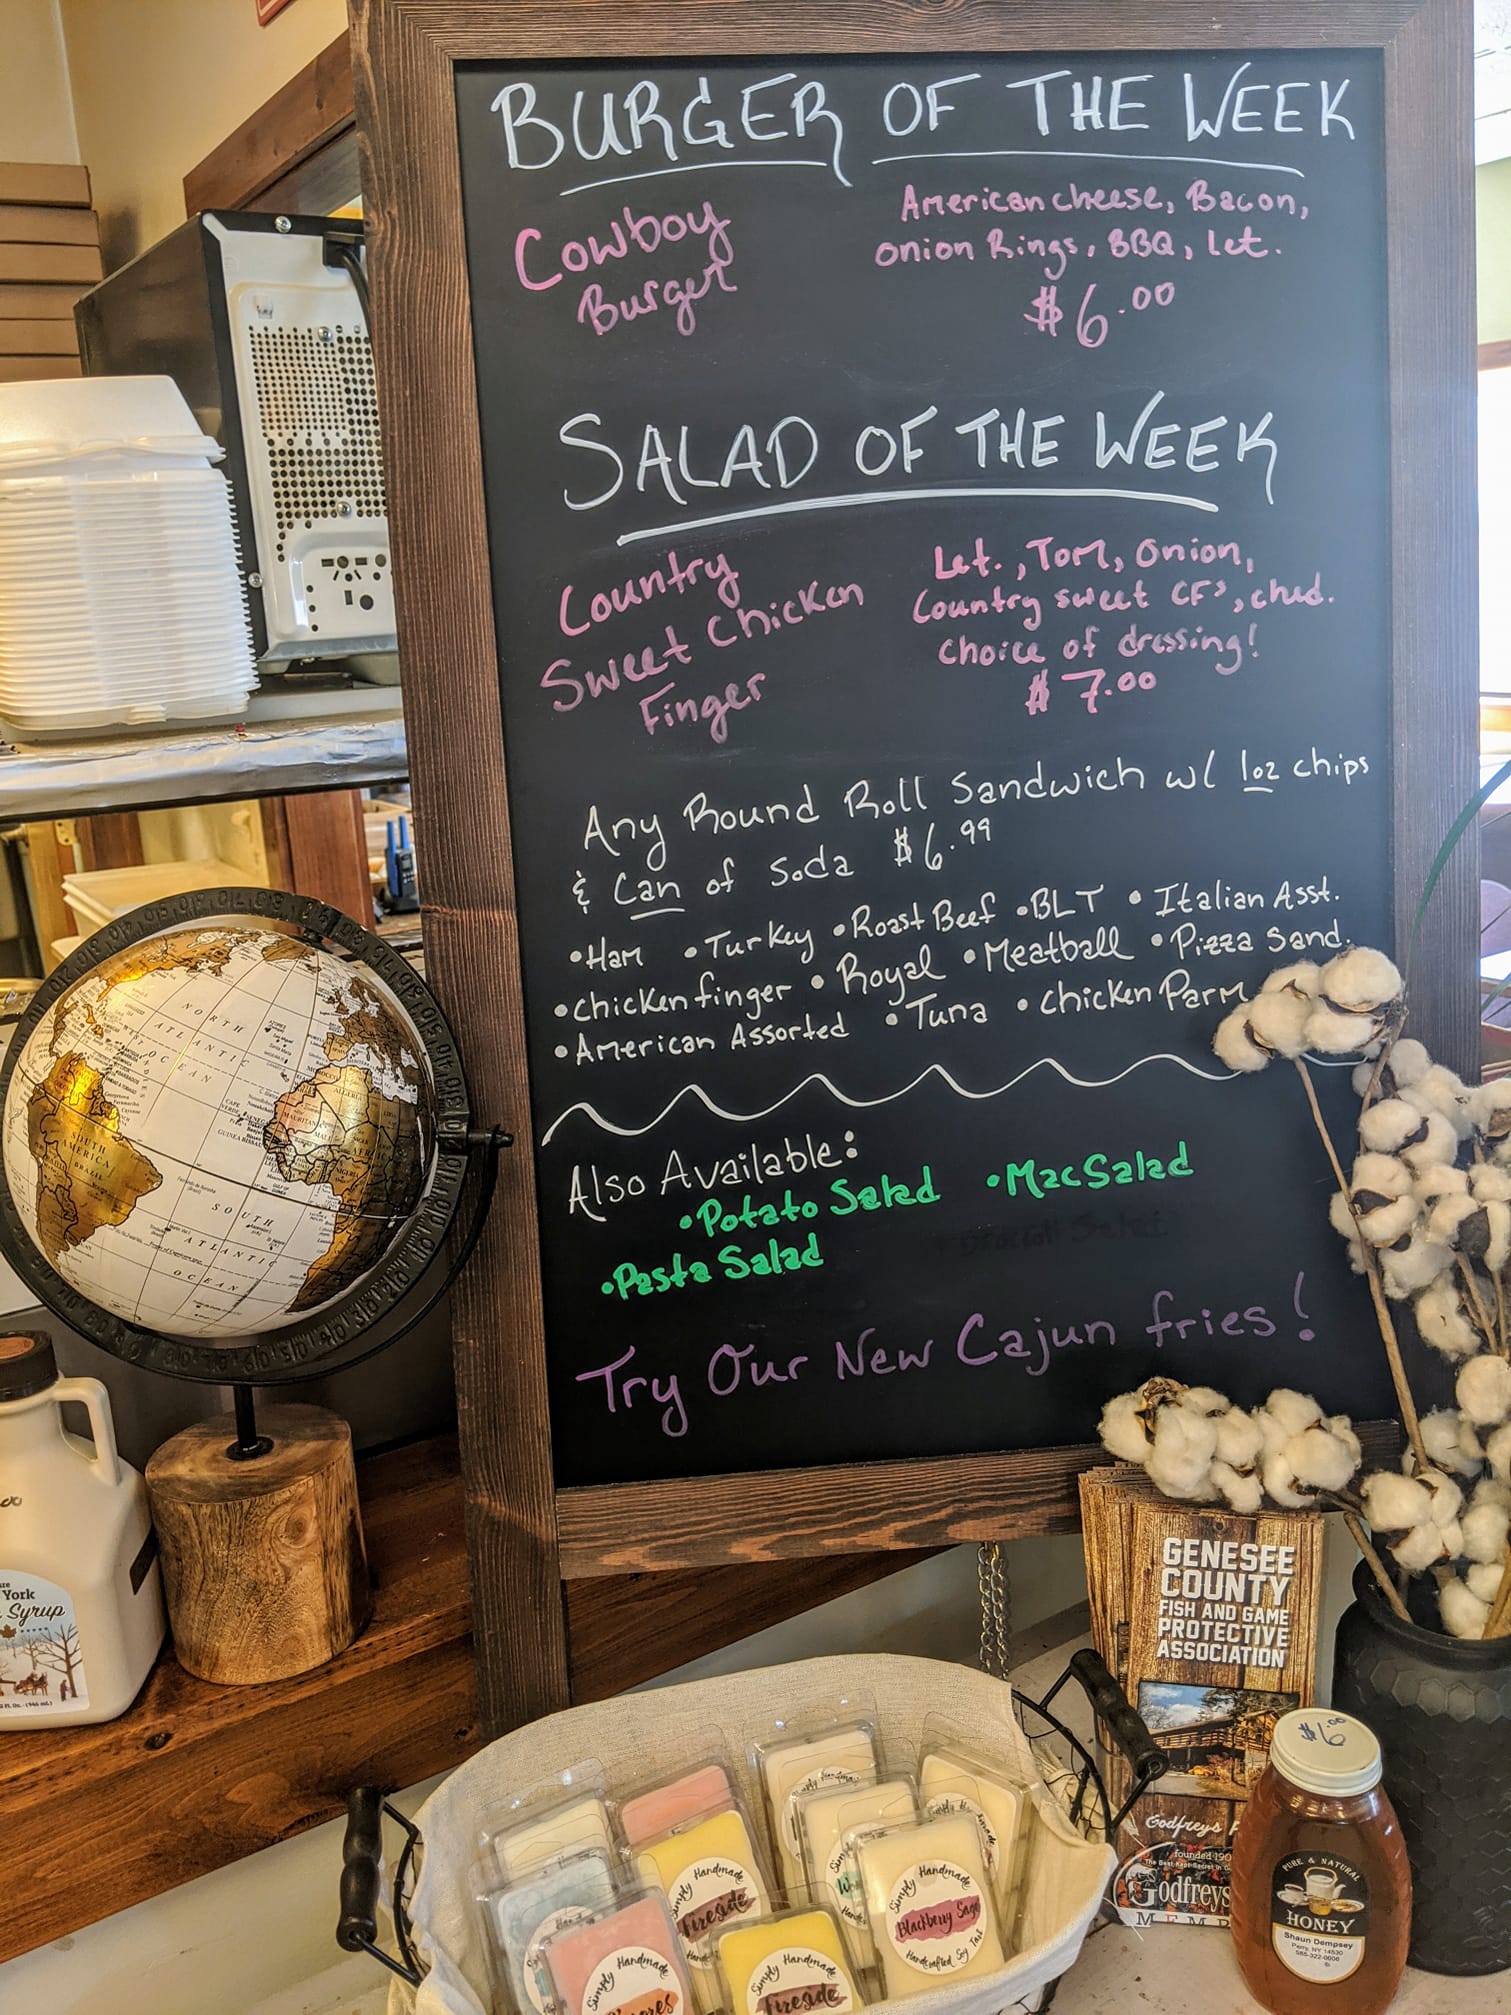 BURGER OF THE WEEK
Cowboy
Burger
American cheese, Bacon,
onion Rings, BBQ, Let.
$6.00
SALAD OF THE WEEK
Country
Sweet Chicken
Finger
Let., Tom, Onion,
Country sweet CFs, ched.
choice of dressing!
$7.00
Any Round Roll Sandwich w/ 1oz chips
& Can of Soda $6.99
•Ham •Turkey •Roast Beef •BLT •Italian Asst.
•Chicken finger •Royal •Meatball •Pizza Sand.
•American Assorted •Tuna •Chicken Parm
Also Available:
•Potato Salad •Mac Salad
•Pasta Salad
Try Our New Cajun fries!
NORTH
ATLANTIC
OCEAN
SOUTH
AMERICA
BRAZIL
SOUTH
ATLANTIC
OCEAN
York
Syrup
GENESEE
COUNTY
FISH AND GAME
PROTECTIVE
ASSOCIATION
Godfreys
founded 190
Godfreys
$6.00
PURE & NATURAL
HONEY
Shaun Dempsey
Perry, NY 14530
585-322-0006
Simply Handmade
Fireside
Simply Handmade
Blackberry Sage
Handcrafted Soy Tart
Simply Handmade
Fireside